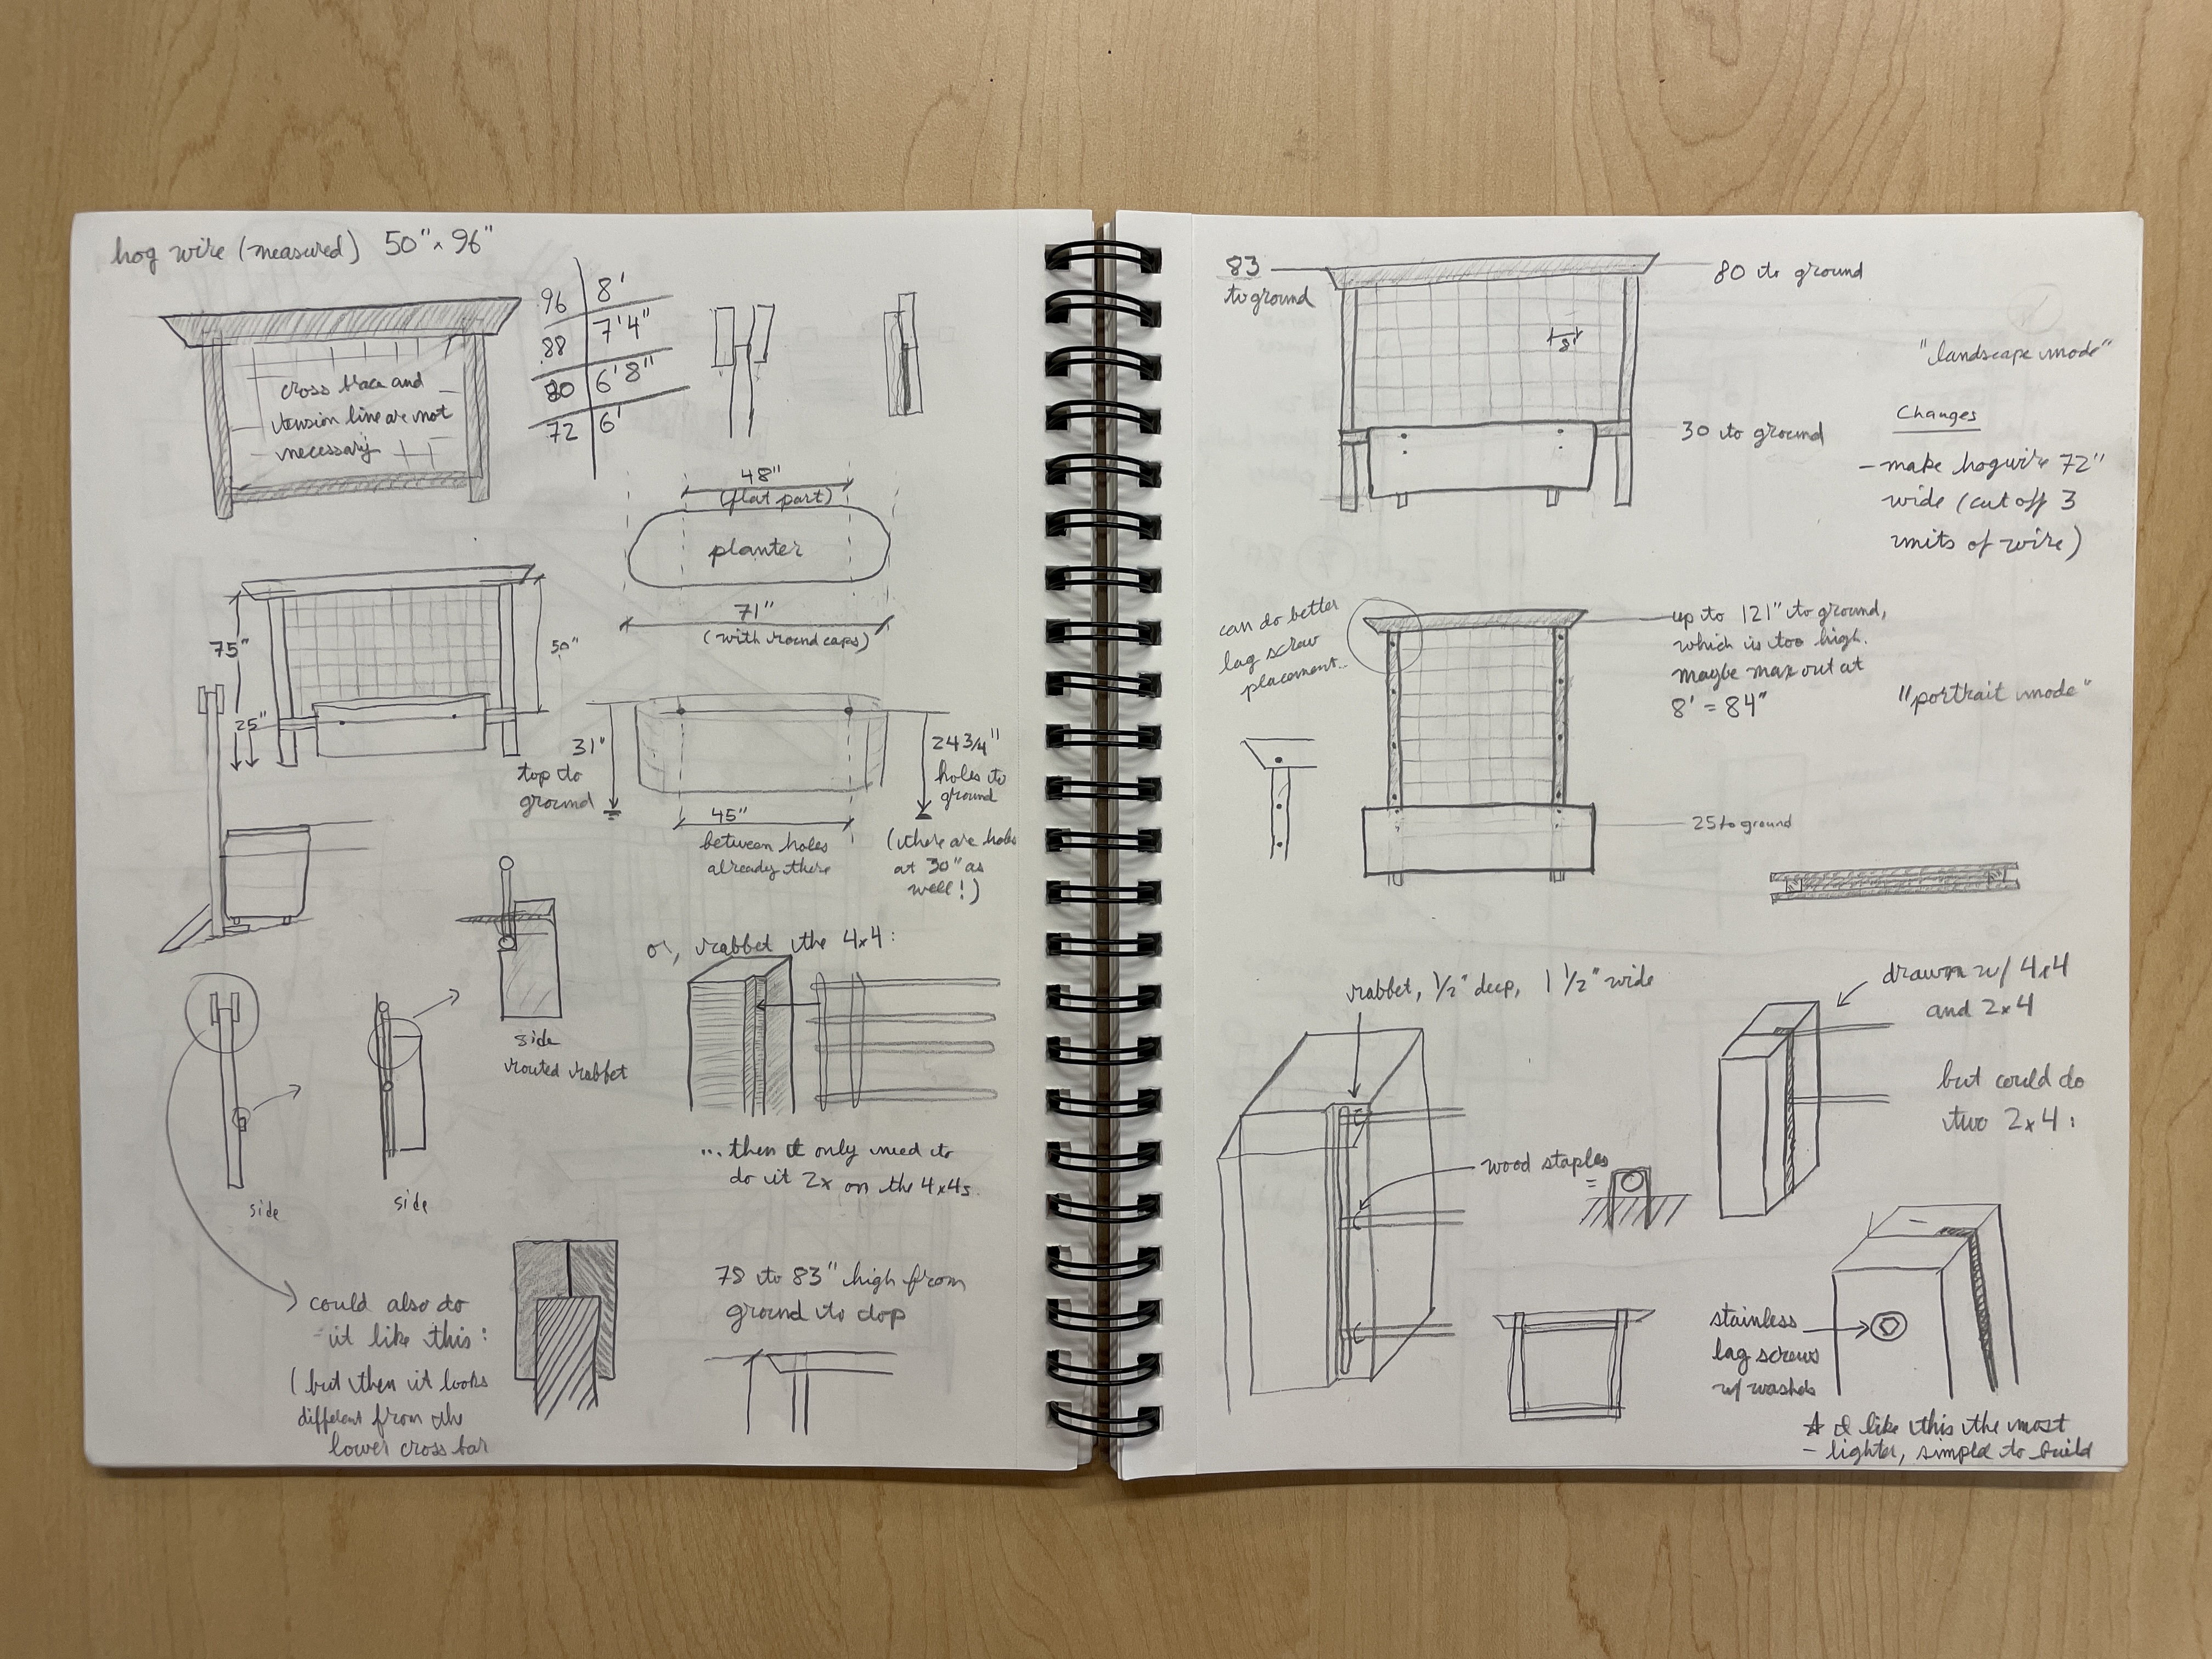 hog wire (measured) 50" x 96"
cross brace and
tension line are not
necessary
96 8'
88 7'4"
80 6'8"
72 6'
48"
(flat part)
planter
71"
(with round caps)
75"
50"
25"
31"
top to
ground
24 3/4"
holes to
ground
(there are holes
at 30" as
well!)
45"
between holes
already there
side
routed rabbet
or, rabbet the 4x4:
... then I only need to
do it 2x on the 4x4s.
side
side
could also do
it like this:
(but then it looks
different from the
lower cross bar
78 to 83" high from
ground to top
83
to ground
80 to ground
8"
30 to ground
"landscape mode"
Changes
- make hogwire 72"
wide (cut off 3
units of wire)
can do better
lag screw
placement...
up to 121" to ground,
which is too high.
maybe max out at
8' = 84"
"portrait mode"
25 to ground
rabbet, 1/2" deep, 1 1/2" wide
wood staples
=
drawn w/ 4x4
and 2x4
but could do
two 2x4:
stainless
lag screws
w/ washers
☆ I like this the most
- lighter, simple to build